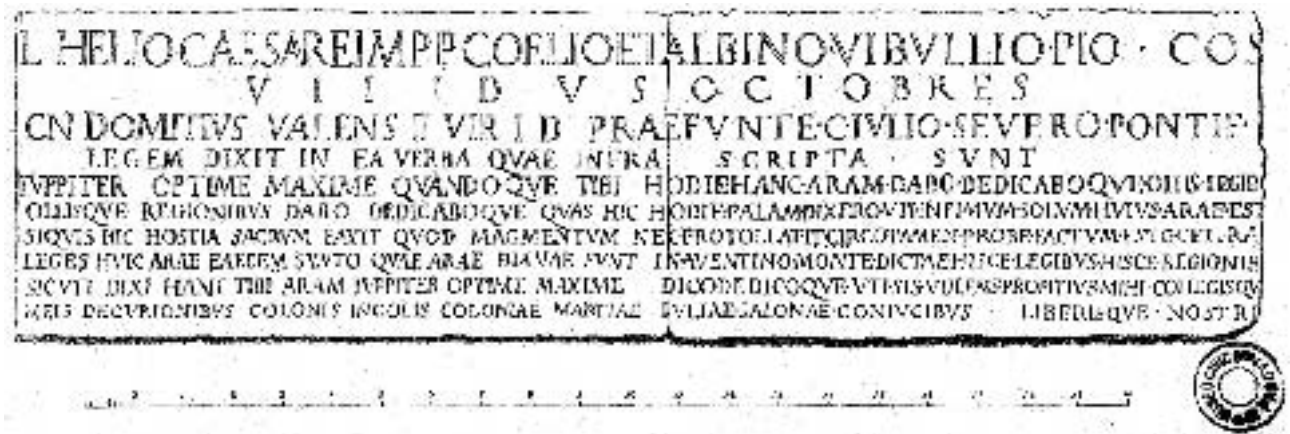 L HELIO CAESARE II M P P COELIO ET ALBINO VIBVLLIO PIO · COS
V I I I D V S O C T O B R E S
CN DOMITIVS VALENS II VIR I D PRAEEVNTE · C IVLIO · SEVERO PONTIF ·
LEGEM DIXIT IN EA VERBA QVAE INFRA SCRIPTA · SVNT
IVPPITER OPTIME MAXIME QVANDOQVE TIBI HODIE HANC ARAM DABO DEDICABOQVE
OLLISQVE REGIONIBVS DABO DEDICABOQVE QVAS HIC HODIE PALAM DIXERO VTI INFIMVM SOLVM HVIVS ARAE EST
SIQVIS HIC HOSTIA SACRVM FAXIT QVOD MAGMENTVM NEC PROTOLLAT IT CIRCO TAMEN PROBE FACTVM ESTO
LEGES HVIC ARAE EAEDEM SVNTO QVAE ARAE DIANAE SVNT IN AVENTINO MONTE DICTAE HISCE LEGIBVS HISCE REGIONIB
SICVTI DIXI HANC TIBI ARAM IVPPITER OPTIME MAXIME DICO DEDICOQVE VTI SIS VOLENS PROPITIVS MIHI COLLEGISQV
MEIS DECVRIONIBVS COLONIS INCOLIS COLONIAE MARTIAE IVLIAE SALONAE CONIVGIBVS · LIBERISQVE · NOSTRI